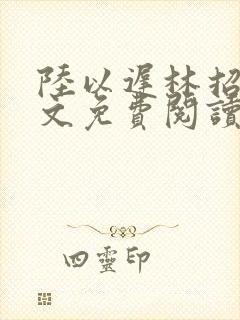 陸以遲林招
文免費閱讀
四靈印